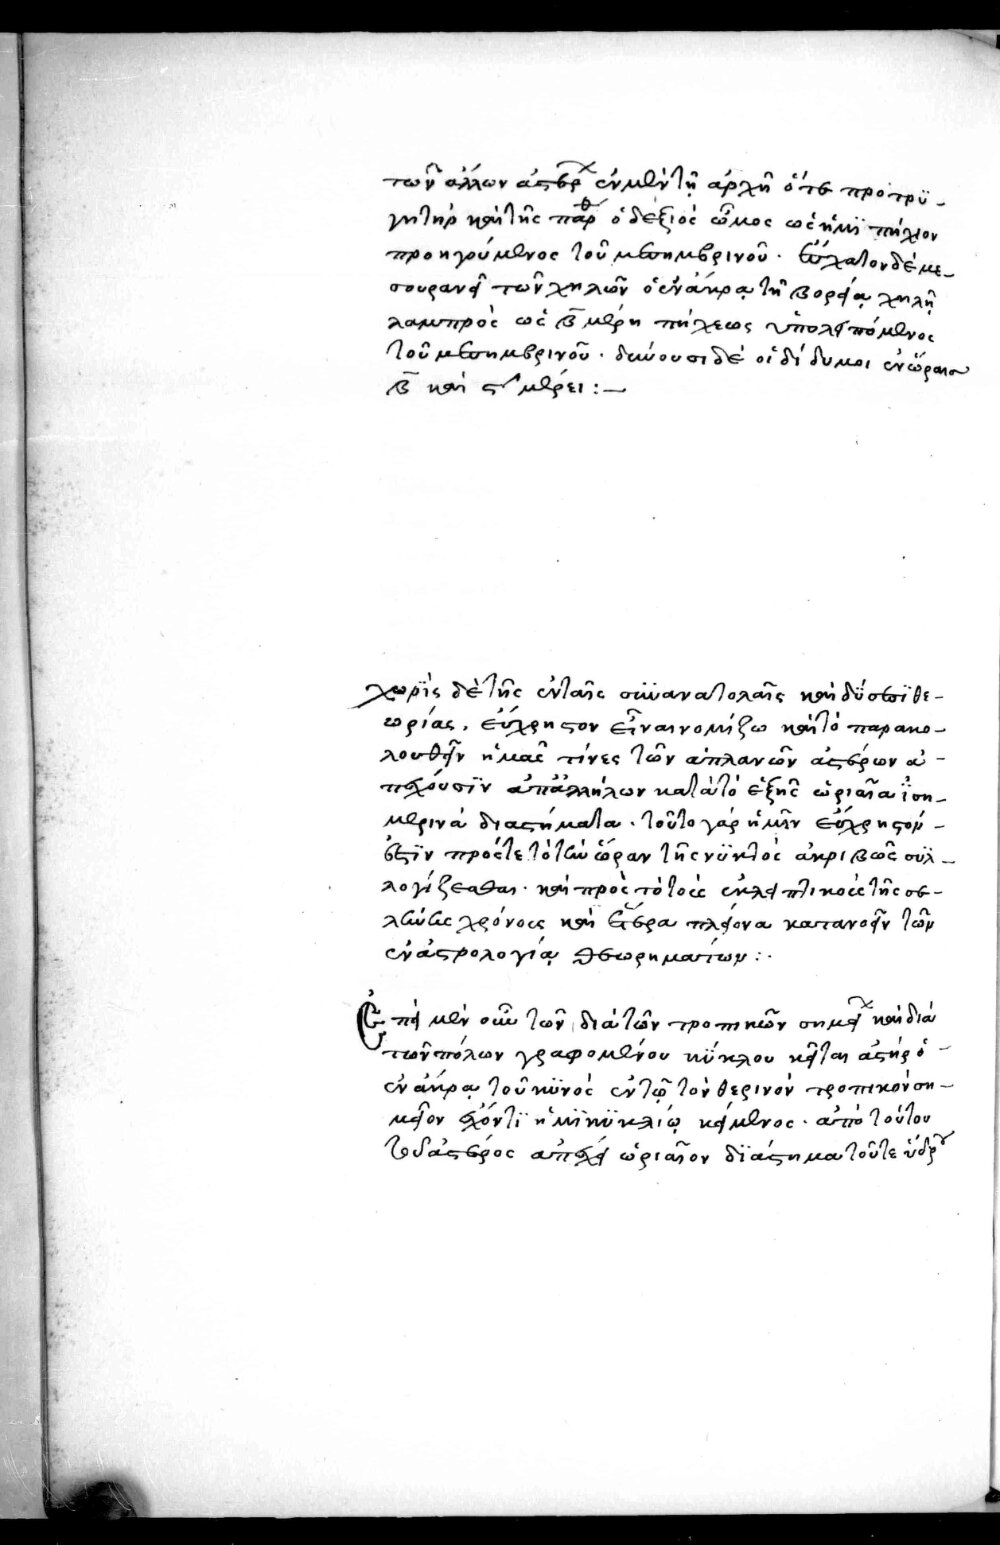 τῶν ἄλλων ἀστέρ ἐν μὲν τῇ ἀρχῇ ὅτε προτρυ-
γητὴρ καὶ τῆς παρθ ὁ δεξιὸς ὦμος ὡς ἡμϊπήχιον
προηγούμενος τοῦ μεσημβρινοῦ· ἔσχατον δὲ με-
σουρανεῖ τῶν χηλῶν ὁ ἐν ἄκρᾳ τῇ βορείᾳ χηλῇ
λαμπρὸς ὡς β μέρη πήχεως ὑπολειπόμενος
τοῦ μεσημβρινοῦ· δύνουσι δὲ οἱ δίδυμοι ἐν ὥραις
β καὶ ς μέρει :—
χωρὶς δὲ τῆς ἐν ταῖς συνανατολαῖς καὶ δύσεσϊ θε-
ωρίας, εὔχρηστον εἶναι νομίζω καὶ τὸ παρακο-
λουθεῖν ἡμᾶς τίνες τῶν ἀπλανῶν ἀστέρων ἀ-
πέχουσϊν ἀπ' ἀλλήλων κατὰ τὸ ἑξῆς ὡριαῖα ἰση-
μερινὰ διαστήματα· τοῦτο γὰρ ἡμῖν εὔχρηστόν
ἐστϊν πρός τε τὸ τὴν ὥραν τῆς νυκτὸς ἀκριβῶς συλ-
λογίζεσθαι· καὶ πρὸς τὸ τοὺς ἐκλειπτικοὺς τῆς σε-
λήνης χρόνους καὶ ἕτερα πλείονα κατανοεῖν τῶν
ἐν ἀστρολογίᾳ θεωρημάτων :·
Ἐπὶ μὲν οὖν τῶν διὰ τῶν τροπικῶν σημεί καὶ διὰ
τῶν πόλων γραφομένου κύκλου κεῖται ἀστὴρ ὁ
ἐν ἄκρᾳ τοῦ κυνὸς ἐν τῷ τὸν θερινὸν τροπικὸν ση-
μεῖον ἔχοντϊ ἡμϊκυκλίῳ κείμενος· ἀπὸ τούτου
τοῦ ἀστέρος ἀπέχει ὡριαῖον διάστημα τοῦ τε ὕδρου